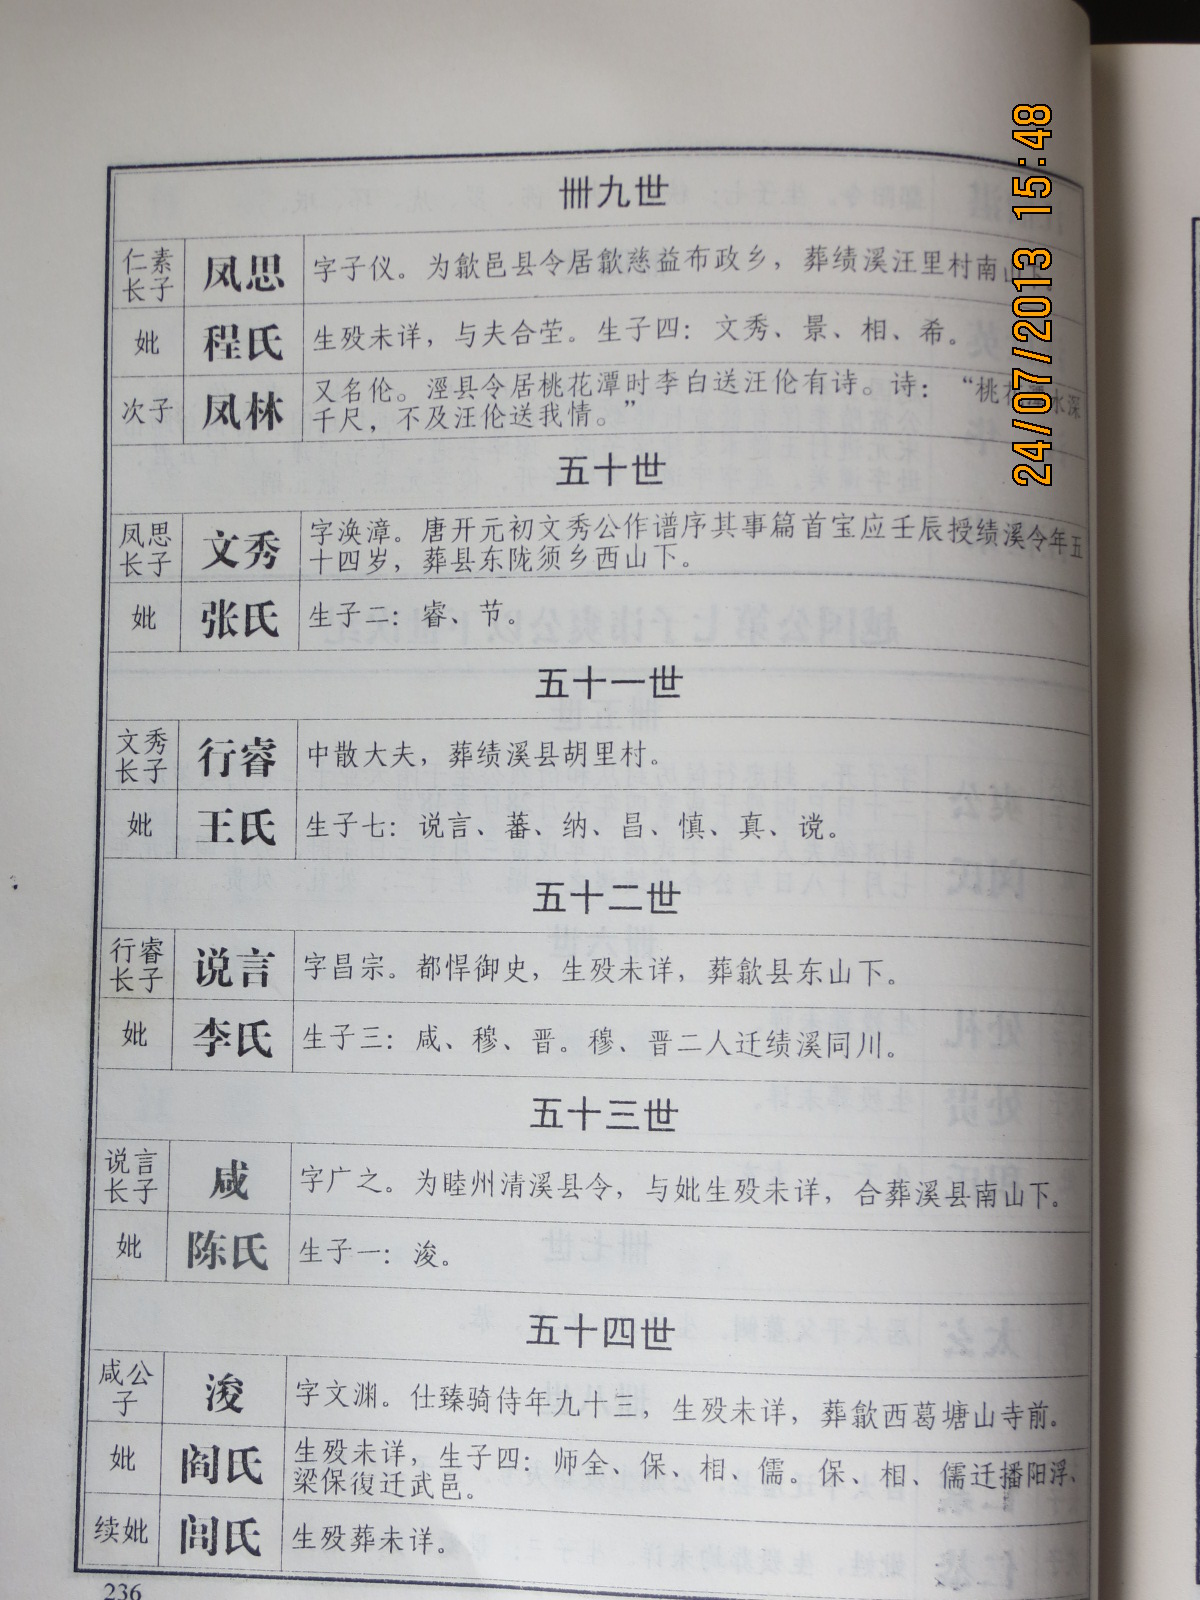 卌九世
仁素
长子
凤思
字子仪。为歙邑县令居歙慈益布政乡，葬绩溪汪里村南山
妣
程氏
生殁未详，与夫合茔。生子四：文秀、景、相、希。
次子
凤林
又名伦。泾县令居桃花潭时李白送汪伦有诗。诗：“桃花潭水深
千尺，不及汪伦送我情。”
五十世
凤思
长子
文秀
字涣漳。唐开元初文秀公作谱序其事篇首宝应壬辰授绩溪令年五
十四岁，葬县东陇须乡西山下。
妣
张氏
生子二：睿、节。
五十一世
文秀
长子
行睿
中散大夫，葬绩溪县胡里村。
妣
王氏
生子七：说言、蕃、纳、昌、慎、真、谠。
五十二世
行睿
长子
说言
字昌宗。都悍御史，生殁未详，葬歙县东山下。
妣
李氏
生子三：咸、穆、晋。穆、晋二人迁绩溪同川。
五十三世
说言
长子
咸
字广之。为睦州清溪县令，与妣生殁未详，合葬溪县南山下。
妣
陈氏
生子一：浚。
五十四世
咸公
子
浚
字文渊。仕臻骑侍年九十三，生殁未详，葬歙西葛塘山寺前。
妣
阎氏
生殁未详，生子四：师全、保、相、儒。保、相、儒迁播阳浮、
梁保復迁武邑。
续妣
闾氏
生殁葬未详。
236
24/07/2013 15:48